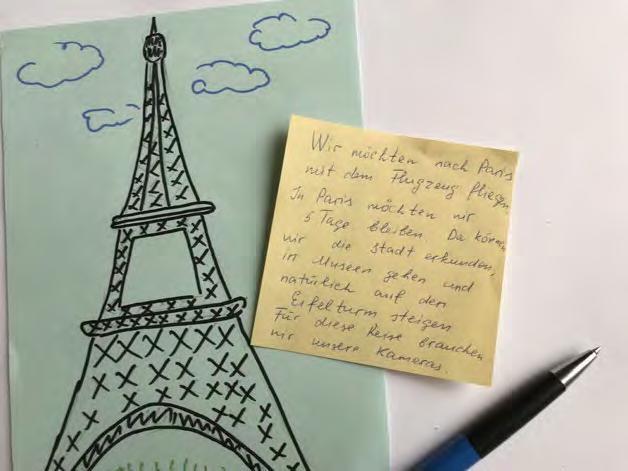 Wir möchten nach Paris
mit dem Flugzeug fliegen.
In Paris möchten wir
5 Tage bleiben. Da können
wir die Stadt erkunden,
in Museen gehen und
natürlich auf den
Eifelturm steigen
Für diese Reise brauchen
wir unsere Kameras.